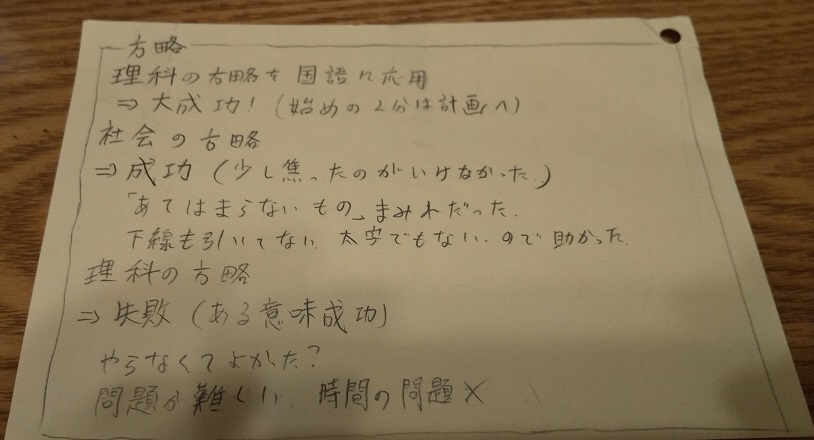 方略
理科の方略を国語に応用
⇒ 大成功! (始めの2分は計画へ)
社会の方略
⇒ 成功 (少し焦ったのがいけなかった)
「あてはまらないもの」まみれだった.
下線も引いてない. 太字でもない. ので助かった.
理科の方略
⇒ 失敗 (ある意味成功)
やらなくてよかった?
問題が難しい. 時間の問題×